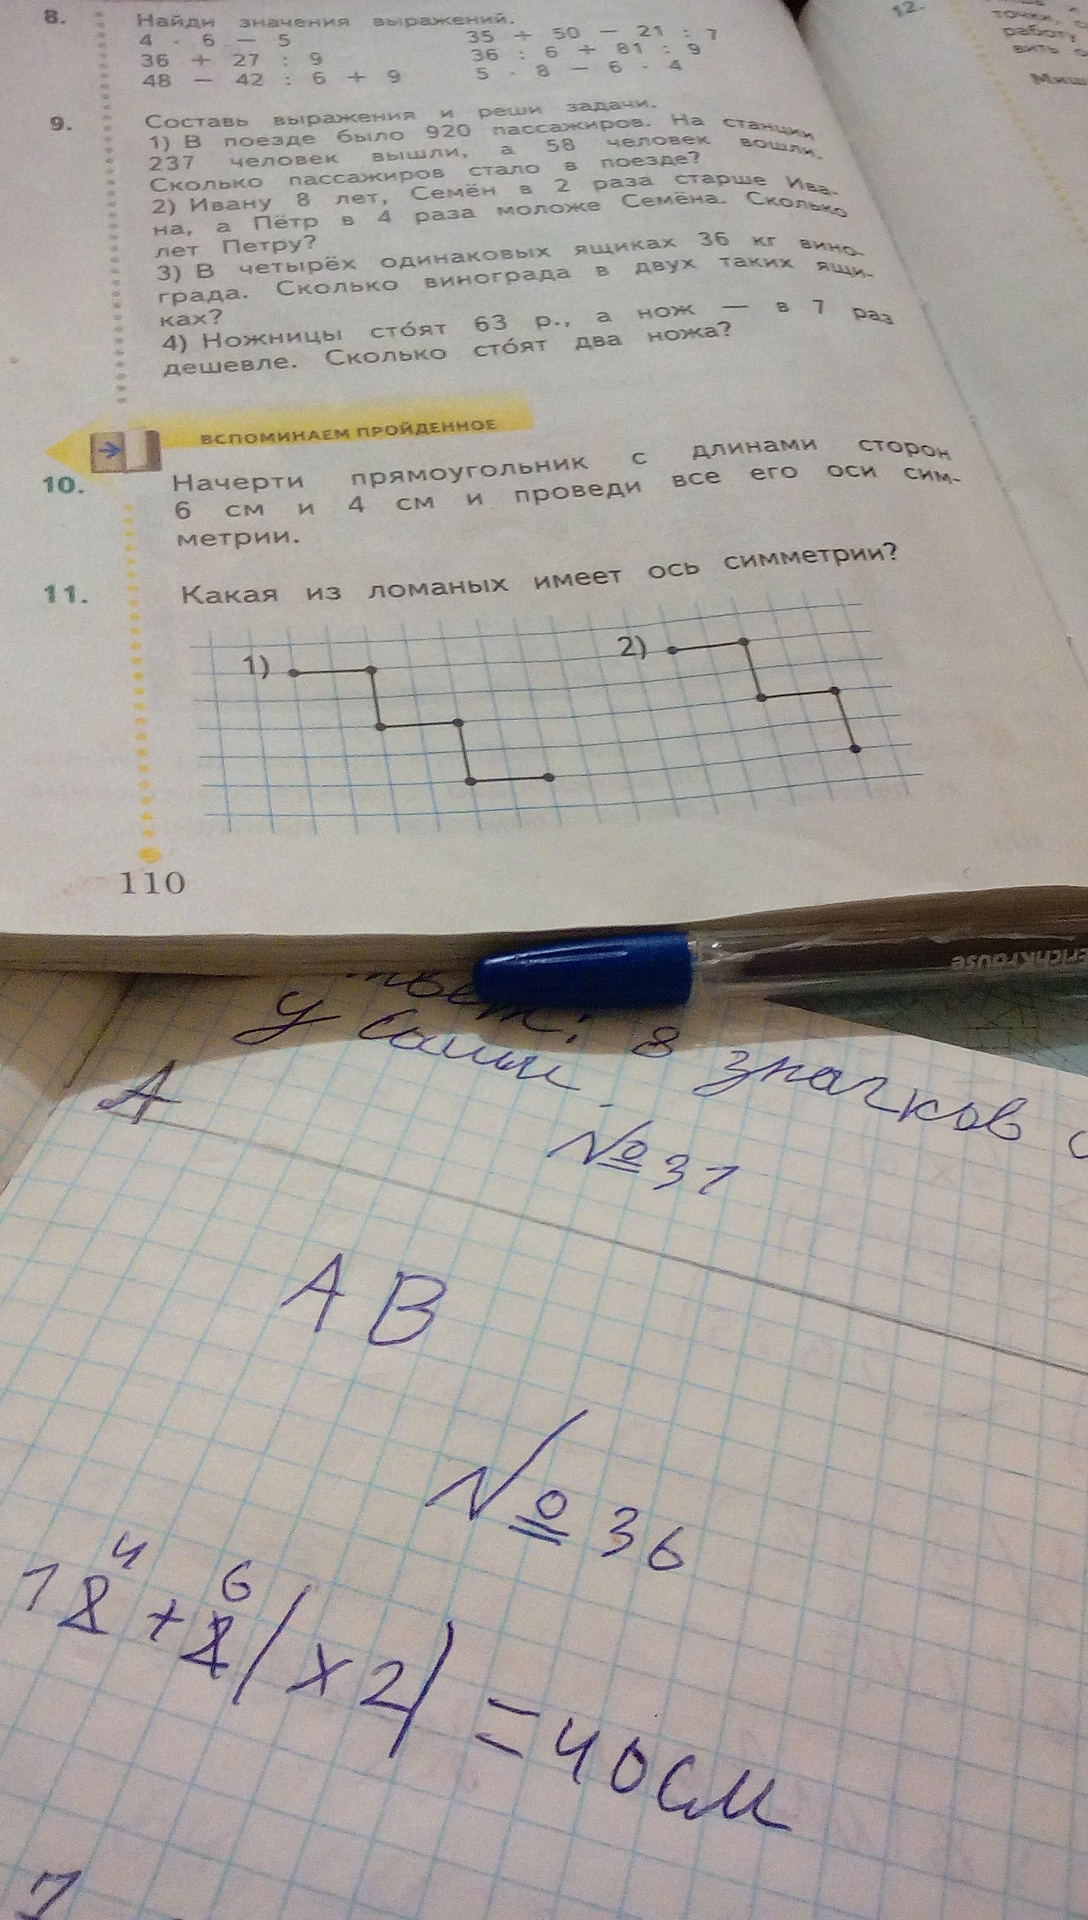 8. Найди значения выражений.
4 · 6 − 5 35 + 50 − 21 : 7
36 + 27 : 9 36 : 6 + 81 : 9
48 − 42 : 6 + 9 5 · 8 − 6 · 4
9. Составь выражения и реши задачи.
1) В поезде было 920 пассажиров. На станции
237 человек вышли, а 58 человек вошли.
Сколько пассажиров стало в поезде?
2) Ивану 8 лет, Семён в 2 раза старше Ива-
на, а Пётр в 4 раза моложе Семёна. Сколько
лет Петру?
3) В четырёх одинаковых ящиках 36 кг вино-
града. Сколько винограда в двух таких ящи-
ках?
4) Ножницы сто́ят 63 р., а нож — в 7 раз
дешевле. Сколько сто́ят два ножа?
ВСПОМИНАЕМ ПРОЙДЕННОЕ
10. Начерти прямоугольник с длинами сторон
6 см и 4 см и проведи все его оси сим-
метрии.
11. Какая из ломаных имеет ось симметрии?
1) 2)
110
12.
точки, с
работу
вить о
Миш
ErichKrause
: 8 значков
у Саши
А
№ 31
А В
№ 36
4 6
18 + 8 (×2) = 40 см
7